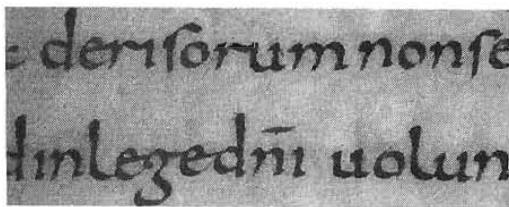 deriſorum nonſe
dinlegedn̄i uolun